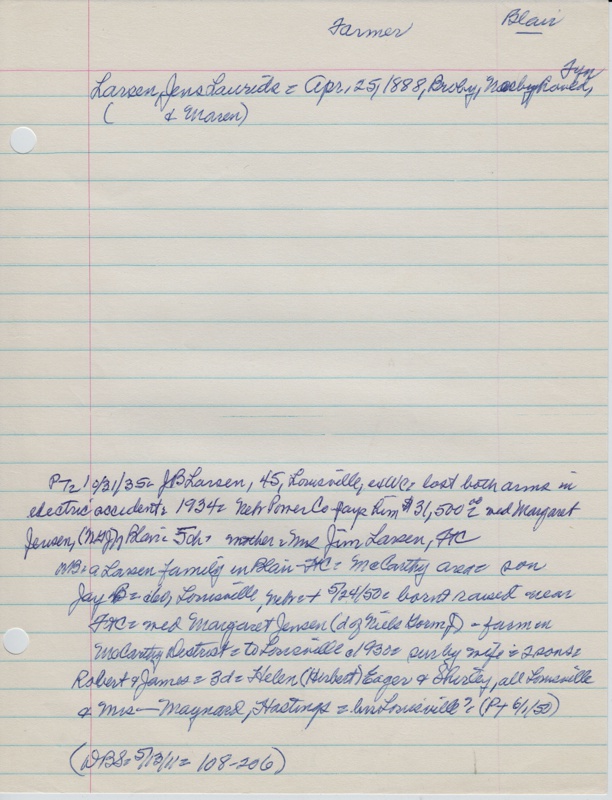 Farmer Blair
Fyn
Larsen, Jens Laurids = Apr. 25, 1888, Broby,
( & Maren)
PT2 10/31/35= JB Larsen, 45, Louisville, exWC= lost both arms in
electric accident= 1934= Neb Power Co pays him $31,500 = md Margaret
Jensen, Blair= 5ch= mother= Mrs Jim Larsen, FtC
NB= a Larsen family in Blair-FtC= McCarthy area= son
Jay B= of Louisville, Nebr= + 5/24/50= born & raised near
FtC= md Margaret Jensen (d of Niels Gorm J) - farm in
McCarthy District= to Louisville c1930= sur by wife= 2 sons=
Robert & James= 3d= Helen (Herbert) Eager & Shirley, all Louisville
& Mrs — Maynard, Hastings = bur Louisville?= (PT 6/1/50)
(DBS= 5/13/11= 108-206)